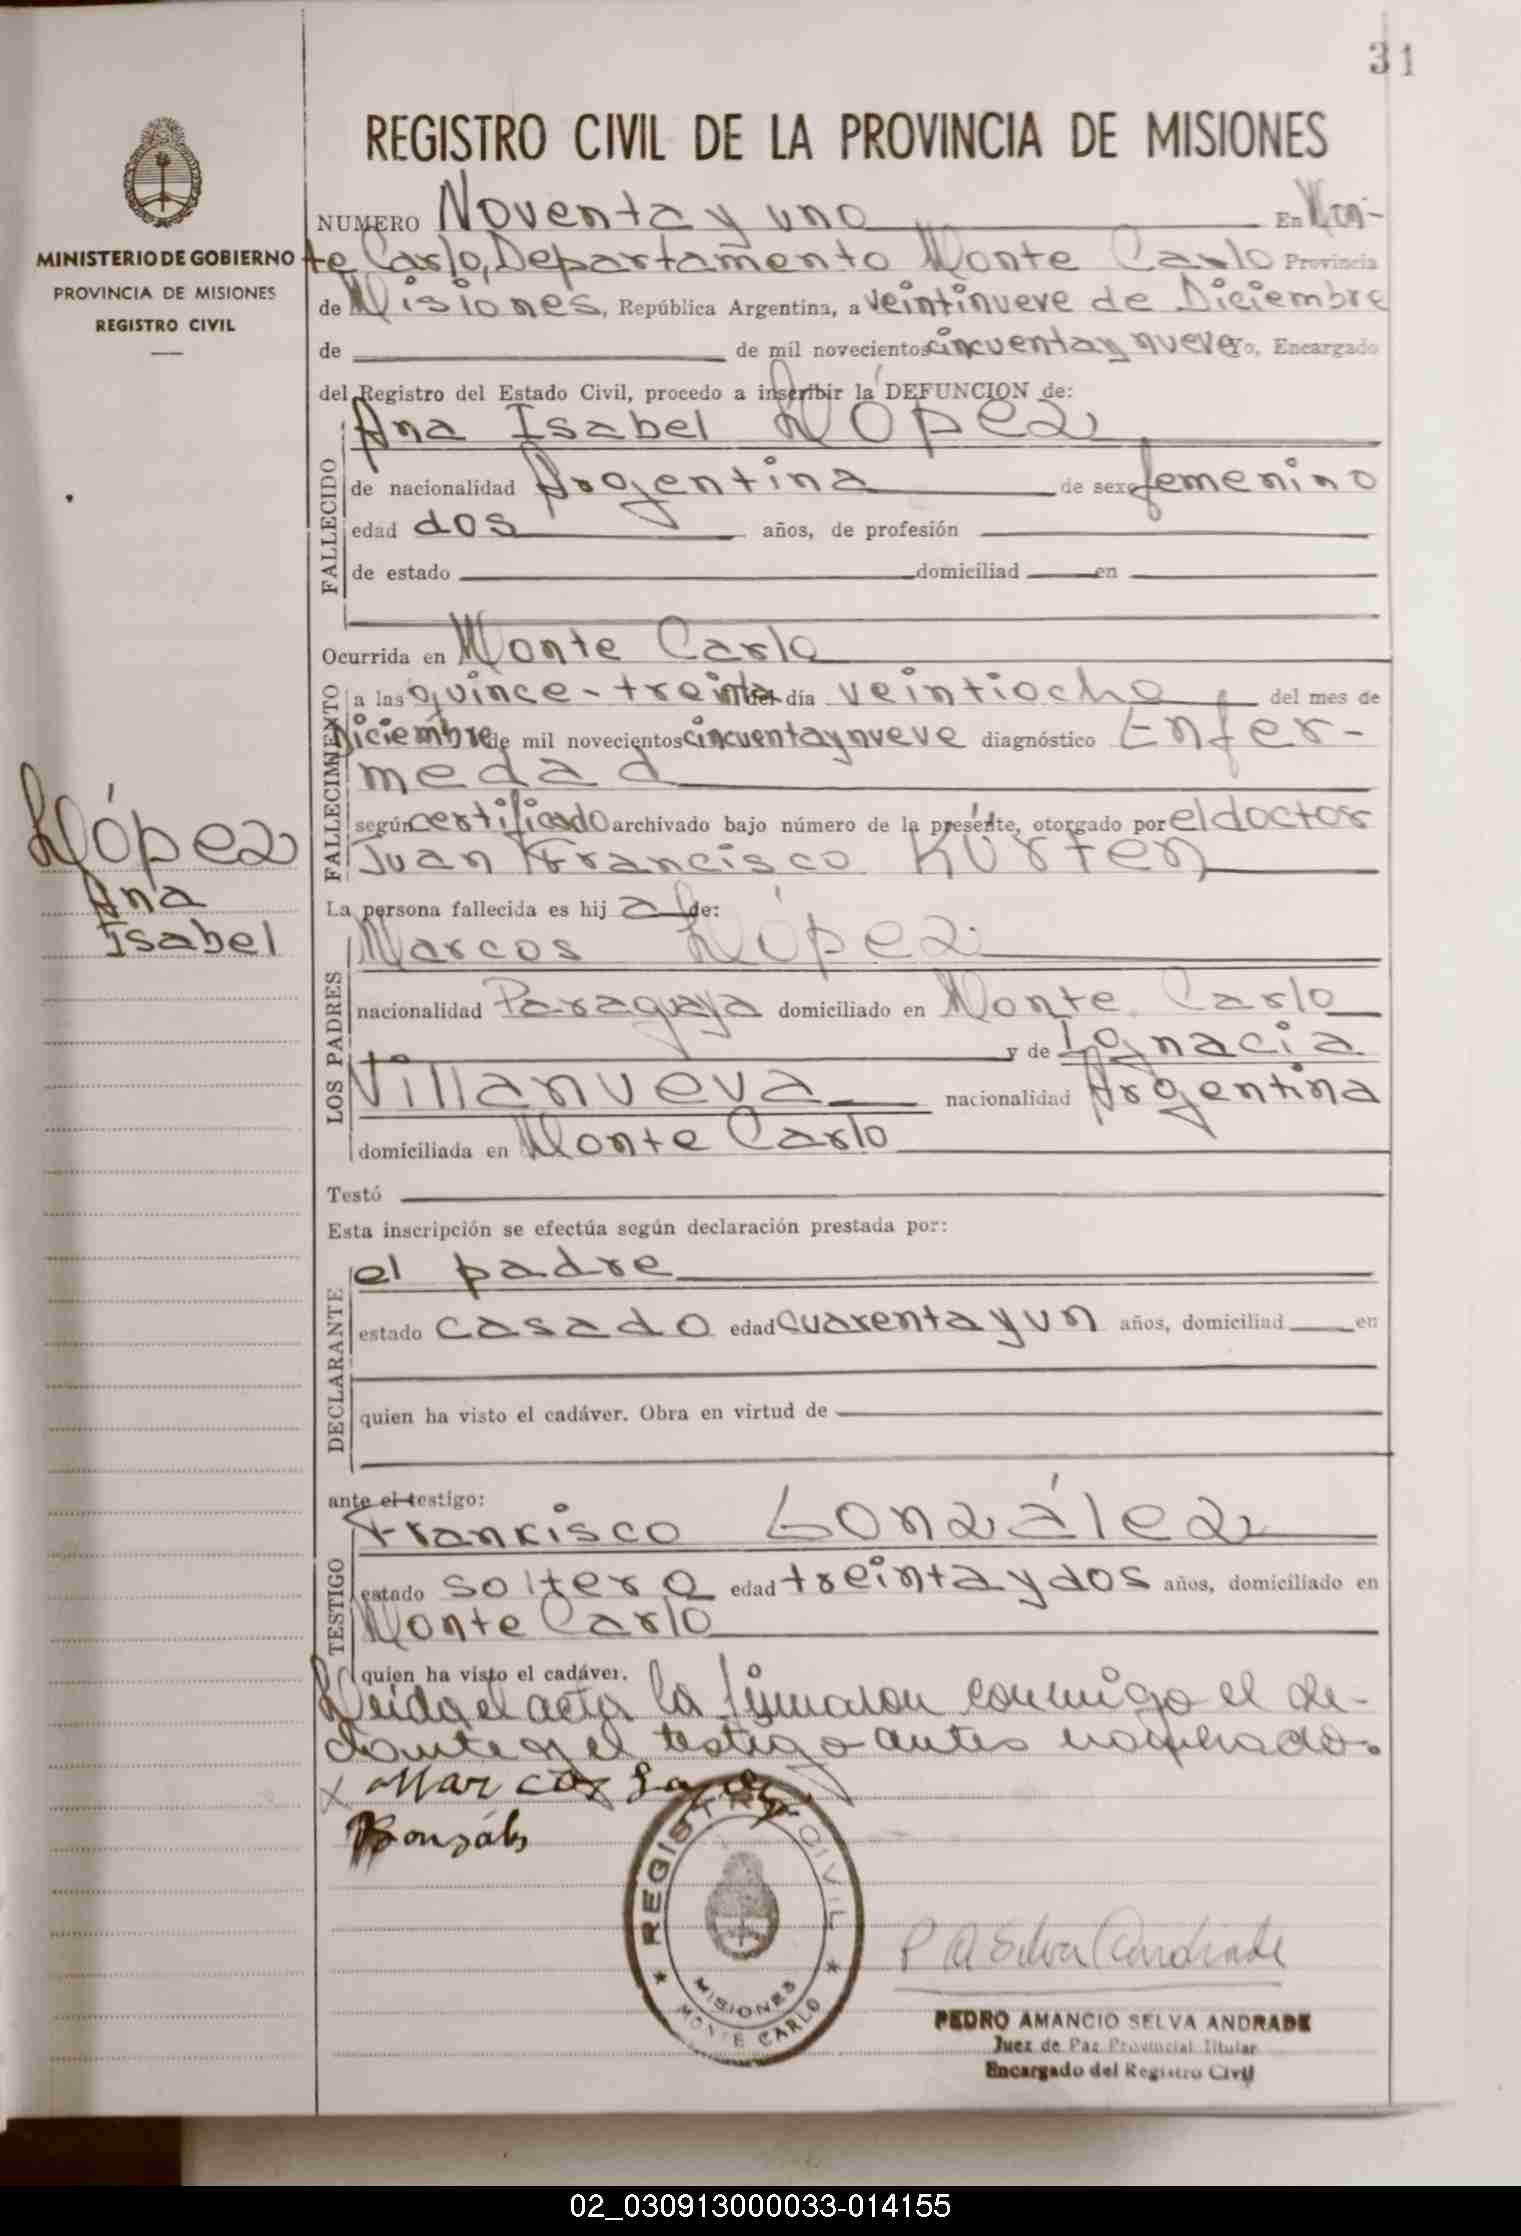 31
REGISTRO CIVIL DE LA PROVINCIA DE MISIONES
MINISTERIO DE GOBIERNO
PROVINCIA DE MISIONES
REGISTRO CIVIL
NUMERO Noventa y uno En Mon-
te Carlo, Departamento Monte Carlo Provincia
de Misiones, República Argentina, a veintinueve de Diciembre
de de mil novecientos cincuenta y nueve Yo, Encargado
del Registro del Estado Civil, procedo a inscribir la DEFUNCION de:
FALLECIDO
Ana Isabel López
de nacionalidad Argentina de sexo femenino
edad dos años, de profesión
de estado domiciliad en
Ocurrida en Monte Carlo
FALLECIMIENTO
a las quince-treinta del día veintiocho del mes de
Diciembre de mil novecientos cincuenta y nueve diagnóstico Enfer-
medad
según certificado archivado bajo número de la presente, otorgado por el doctor
Juan Francisco Kürten
López
Ana
Isabel
La persona fallecida es hij a de:
LOS PADRES
Marcos López
nacionalidad Paraguaya domiciliado en Monte Carlo
y de Ignacia
Villanueva nacionalidad Argentina
domiciliada en Monte Carlo
Testó
Esta inscripción se efectúa según declaración prestada por:
DECLARANTE
el padre
estado casado edad cuarenta y un años, domiciliad en
quien ha visto el cadáver. Obra en virtud de
ante el testigo:
TESTIGO
Francisco González
estado soltero edad treinta y dos años, domiciliado en
Monte Carlo
quien ha visto el cadáver.
Leida el acta la firmaron conmigo el de-
y el testigo antes nombrado.
x Marcos
Gonzáles
REGISTRO CIVIL
MISIONES
MONTE CARLO
P A Selva Andrade
PEDRO AMANCIO SELVA ANDRADE
Juez de Paz Provincial Titular
Encargado del Registro Civil
02_030913000033-014155